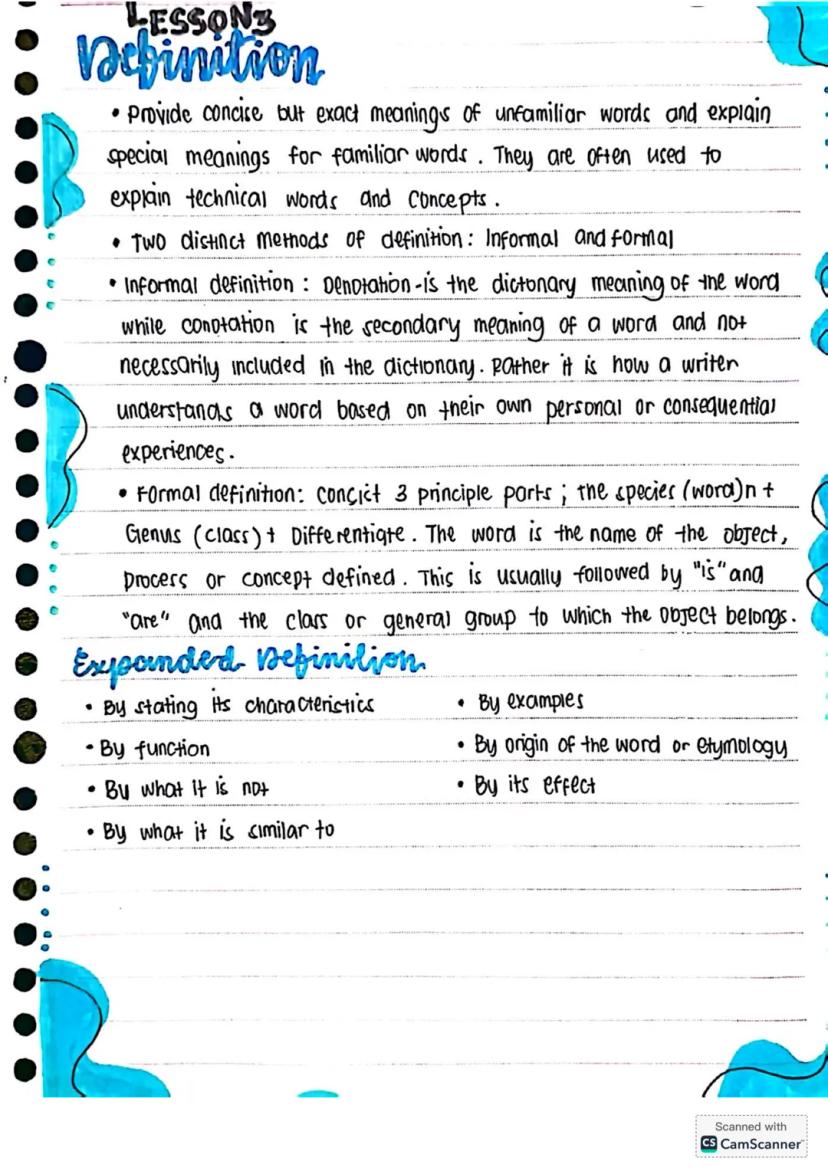 LESSON3
Definition
• Provide concise but exact meanings of unfamiliar words and explain
special meanings for familiar words. They are often used to
explain technical words and concepts.
• Two distinct methods of definition: Informal and formal
• Informal definition: Denotation-is the dictonary meaning of the word
while conotation is the secondary meaning of a word and not
necessarily included in the dictionary. Rather it is how a writer
understands a word based on their own personal or consequential
experiences.
• Formal definition: concict 3 principle parts; the species (word)n +
Genus (class) + Differentiate. The word is the name of the object,
process or concept defined. This is usually followed by "is" and
"are" and the class or general group to which the object belongs.
Expanded Definition
• By stating its characteristics
• By function
• By what it is not
• By what it is similar to
• By examples
• By origin of the word or etymology
• By its effect
Scanned with
CS CamScanner